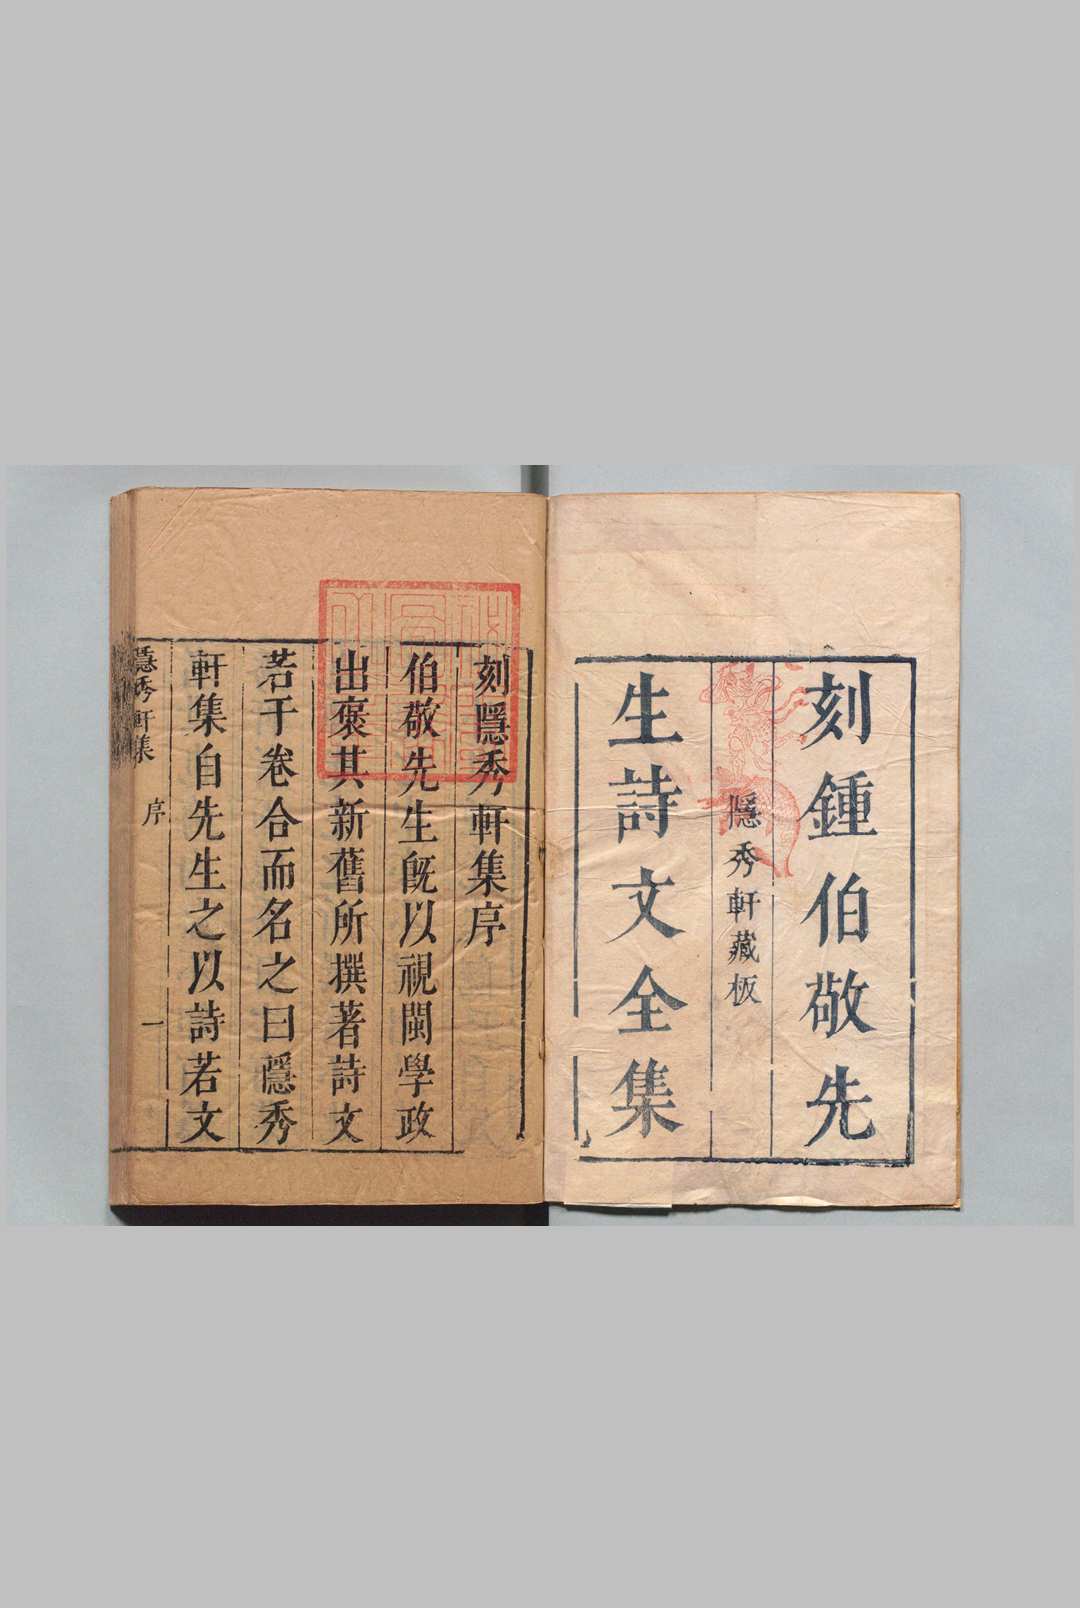 刻鍾伯敬先
隱秀軒藏板
生詩文全集
刻隱秀軒集序
伯敬先生旣以視閩學政
出褒其新舊所撰著詩文
若干卷合而名之曰隱秀
軒集自先生之以詩若文
隱秀軒集 序 一